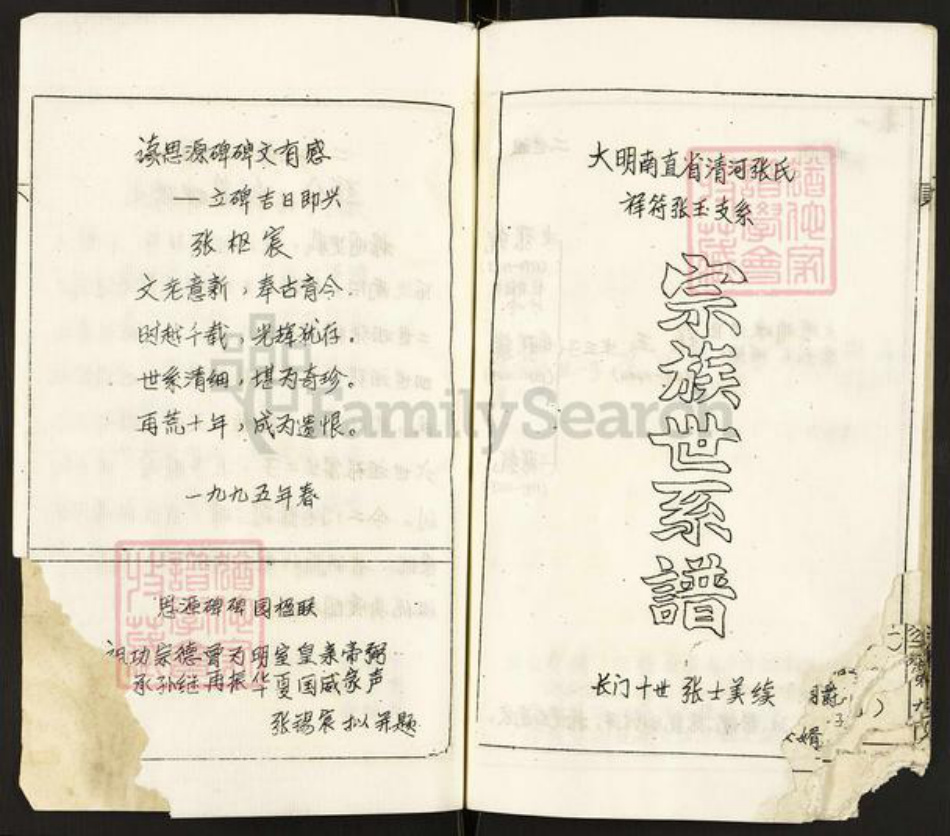 读思源碑碑文有感
——立碑吉日即兴
张枢宸
文老意新，奉古育今。
时越千载，光辉犹存。
世系清细，堪为奇珍。
再荒十年，成为遗恨。
一九九五年春
思源碑碑园楹联
祖功宗德曾为明室皇亲帝弼
承孙继再振华夏国威家声
张锡宸拟并题
大明南直省清河张氏
祥符张玉支系
宗族世系譜
长门十世 张士美续
FamilySearch